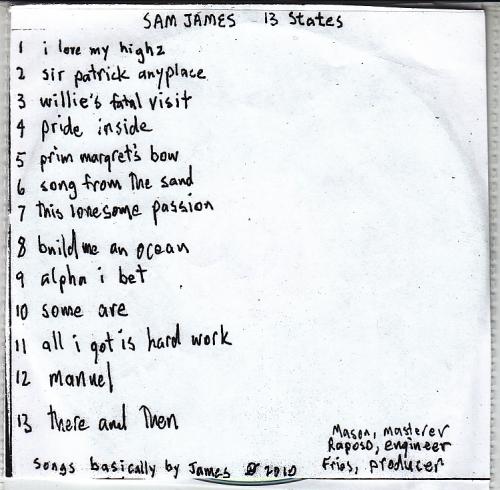 SAM JAMES 13 States
1 i love my highz
2 sir patrick anyplace
3 willie's fatal visit
4 pride inside
5 prim margret's bow
6 song from the sand
7 this lonesome passion
8 build me an ocean
9 alpha i bet
10 some are
11 all i got is hard work
12 manuel
13 there and then
Mason, masterer
Raposo, engineer
Frias, producer
songs basically by James 2010